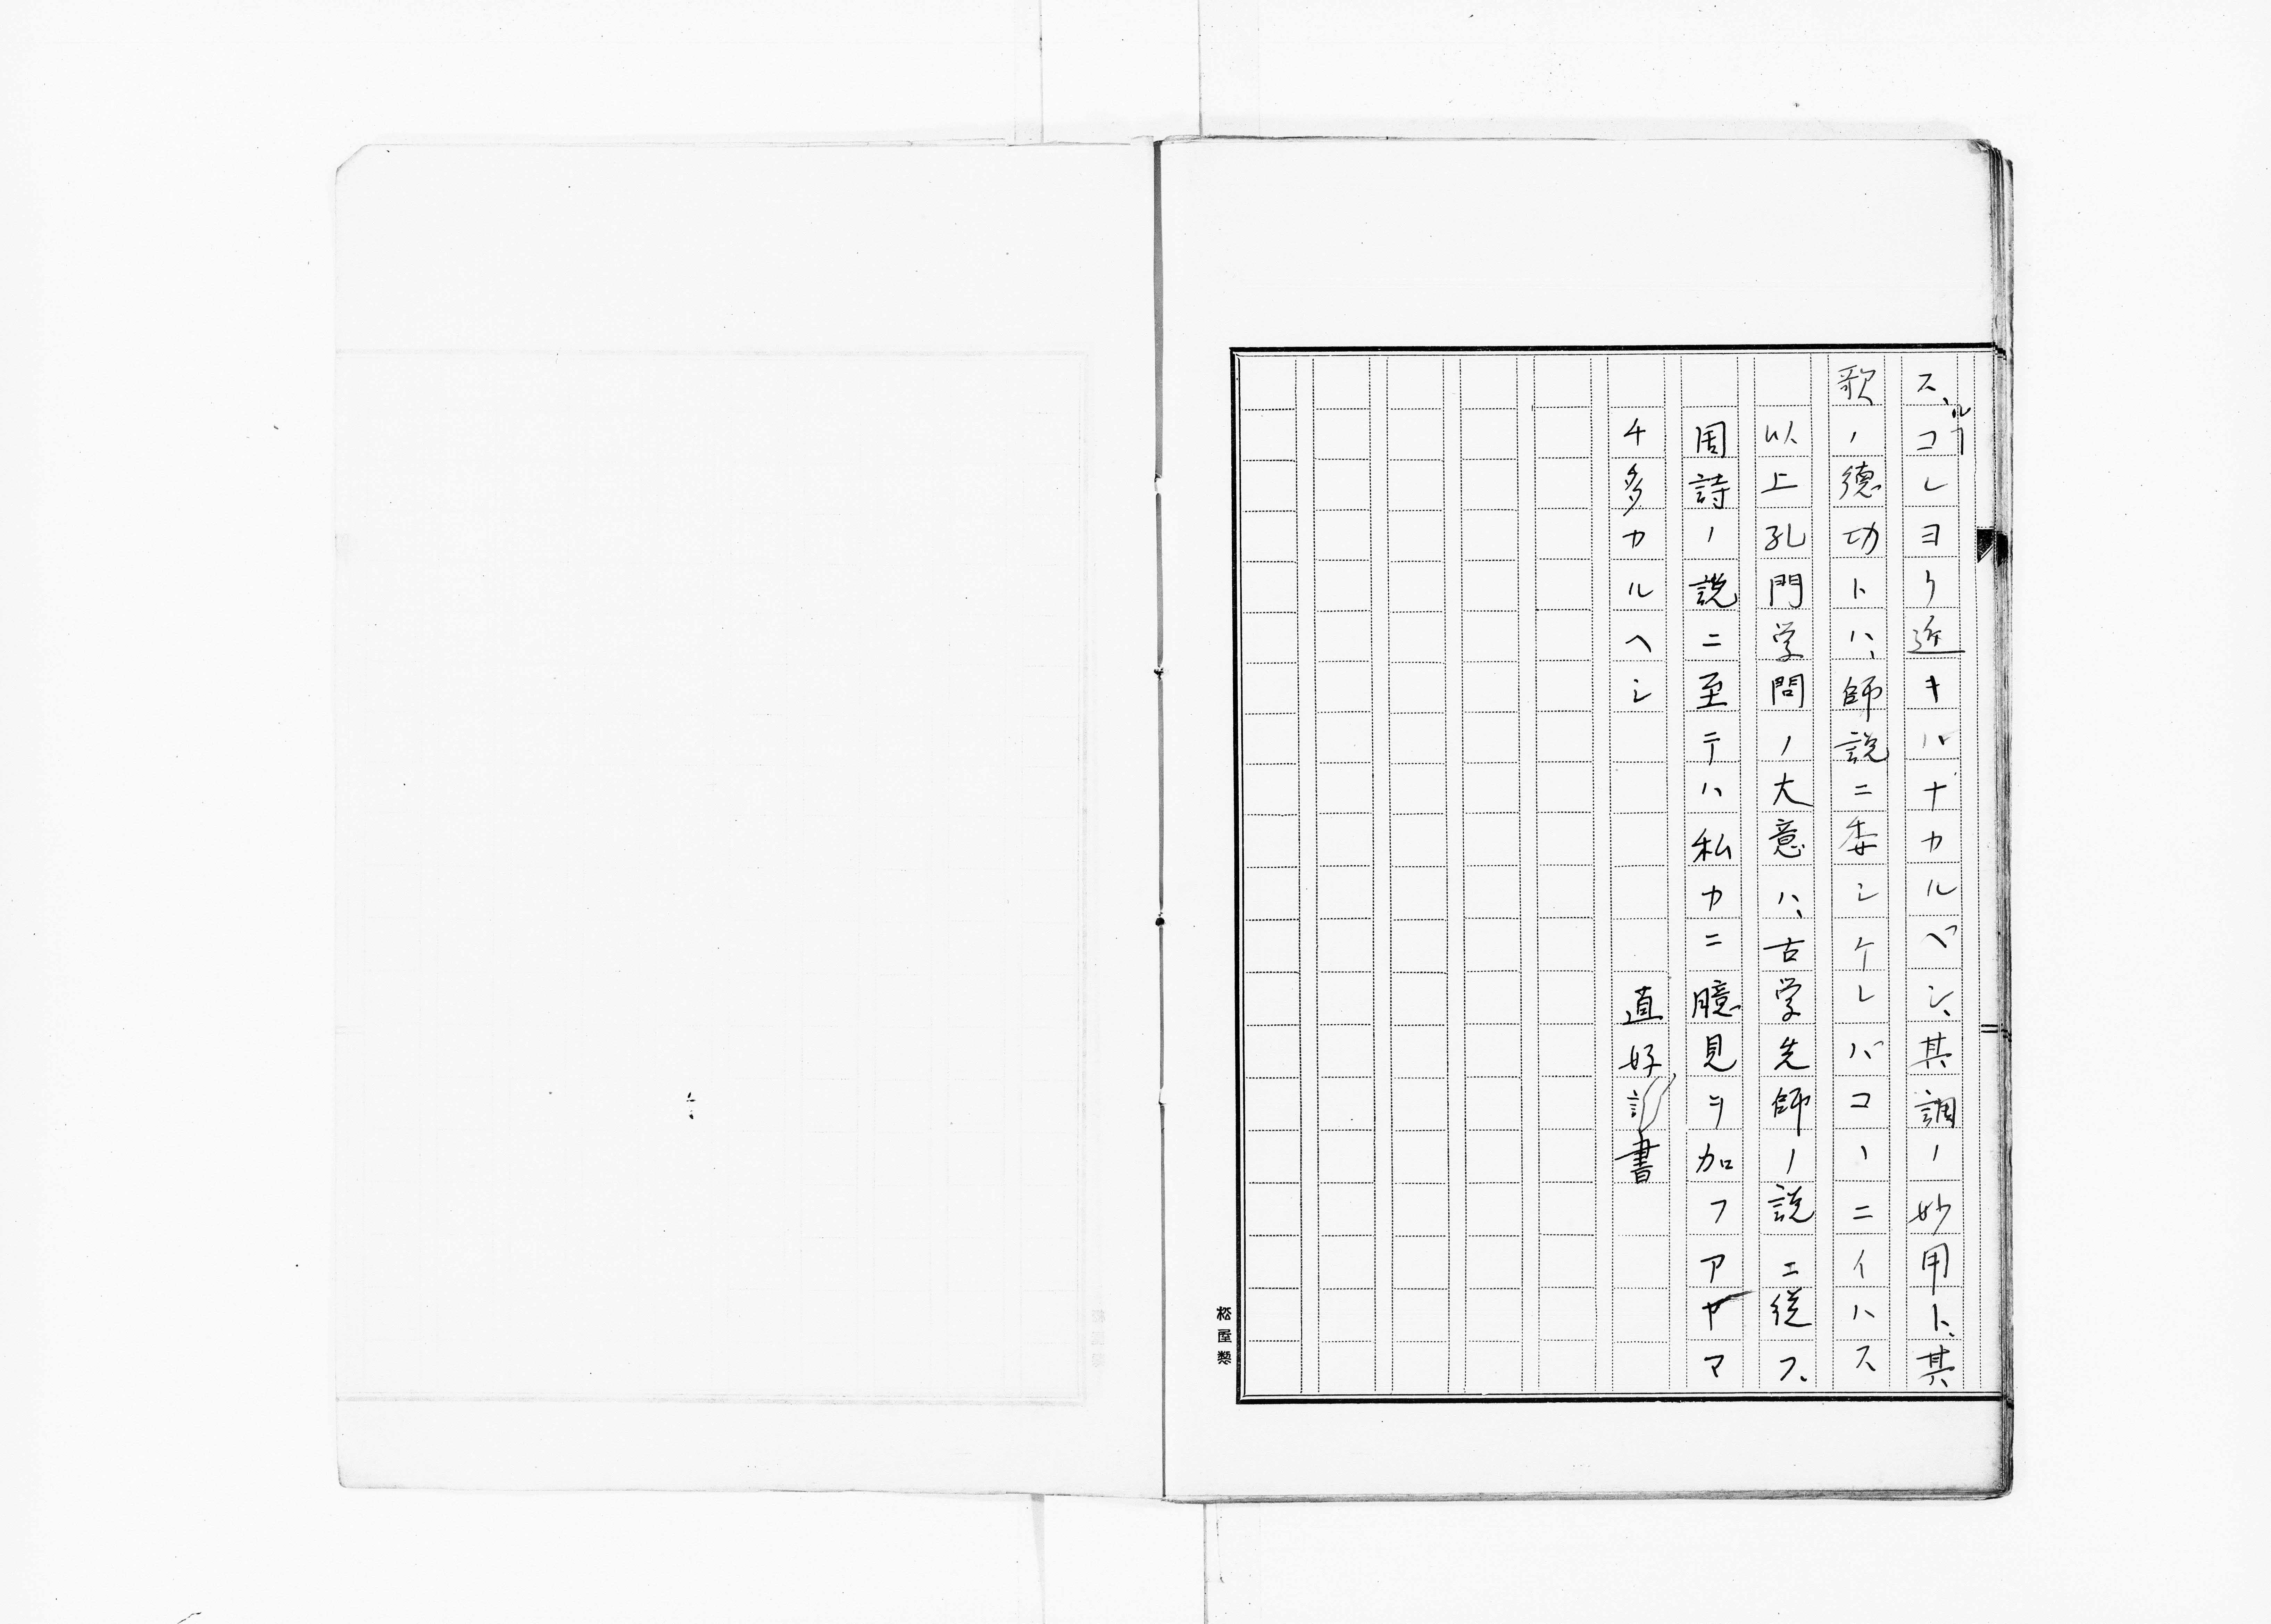 ス、ルコレヨリ近キハナカルベシ、其調ノ妙用ト、其
歌ノ徳功トハ、師説ニ委シケレバコヽニイハス
以上孔門学問ノ大意ハ、古学先師ノ説ニ従フ、
周詩ノ説ニ至テハ私カニ臆見ヲ加フアヤマ
チ多カルヘシ
直好記書
松屋製